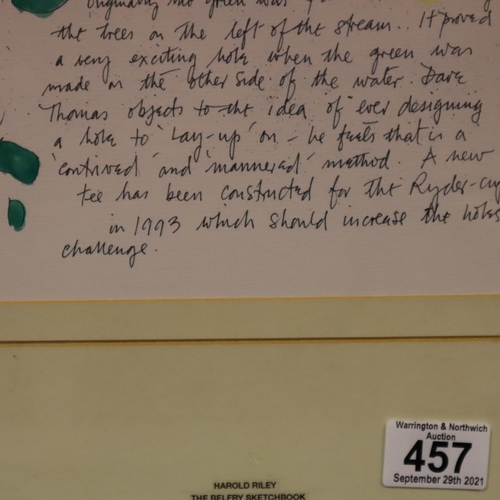 originally the green was
the trees on the left of the stream.. It proved
a very exciting hole when the green was
made on the other side of the water. Dave
Thomas objects to the idea of ever designing
a hole to 'lay-up' on – he feels that is a
'contrived' and 'mannered' method. A new
tee has been constructed for the Ryder-cup
in 1993 which should increase the holes
challenge.
Warrington & Northwich
Auction
457
September 29th 2021
HAROLD RILEY
THE BELFRY SKETCHBOOK